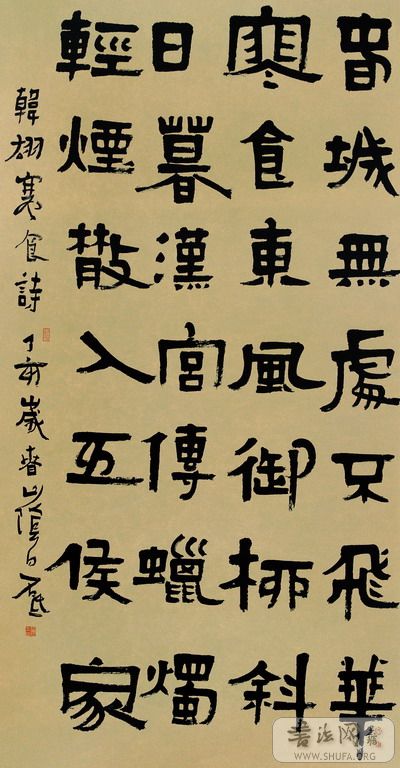 旾城無處不飛華
寒食東風御柳斜
日暮漢宮傳蠟燭
輕煙散入五侯家
韓翃寒食詩丁亥歲春山陰白砥
書法网
WWW.SHUFA.ORG